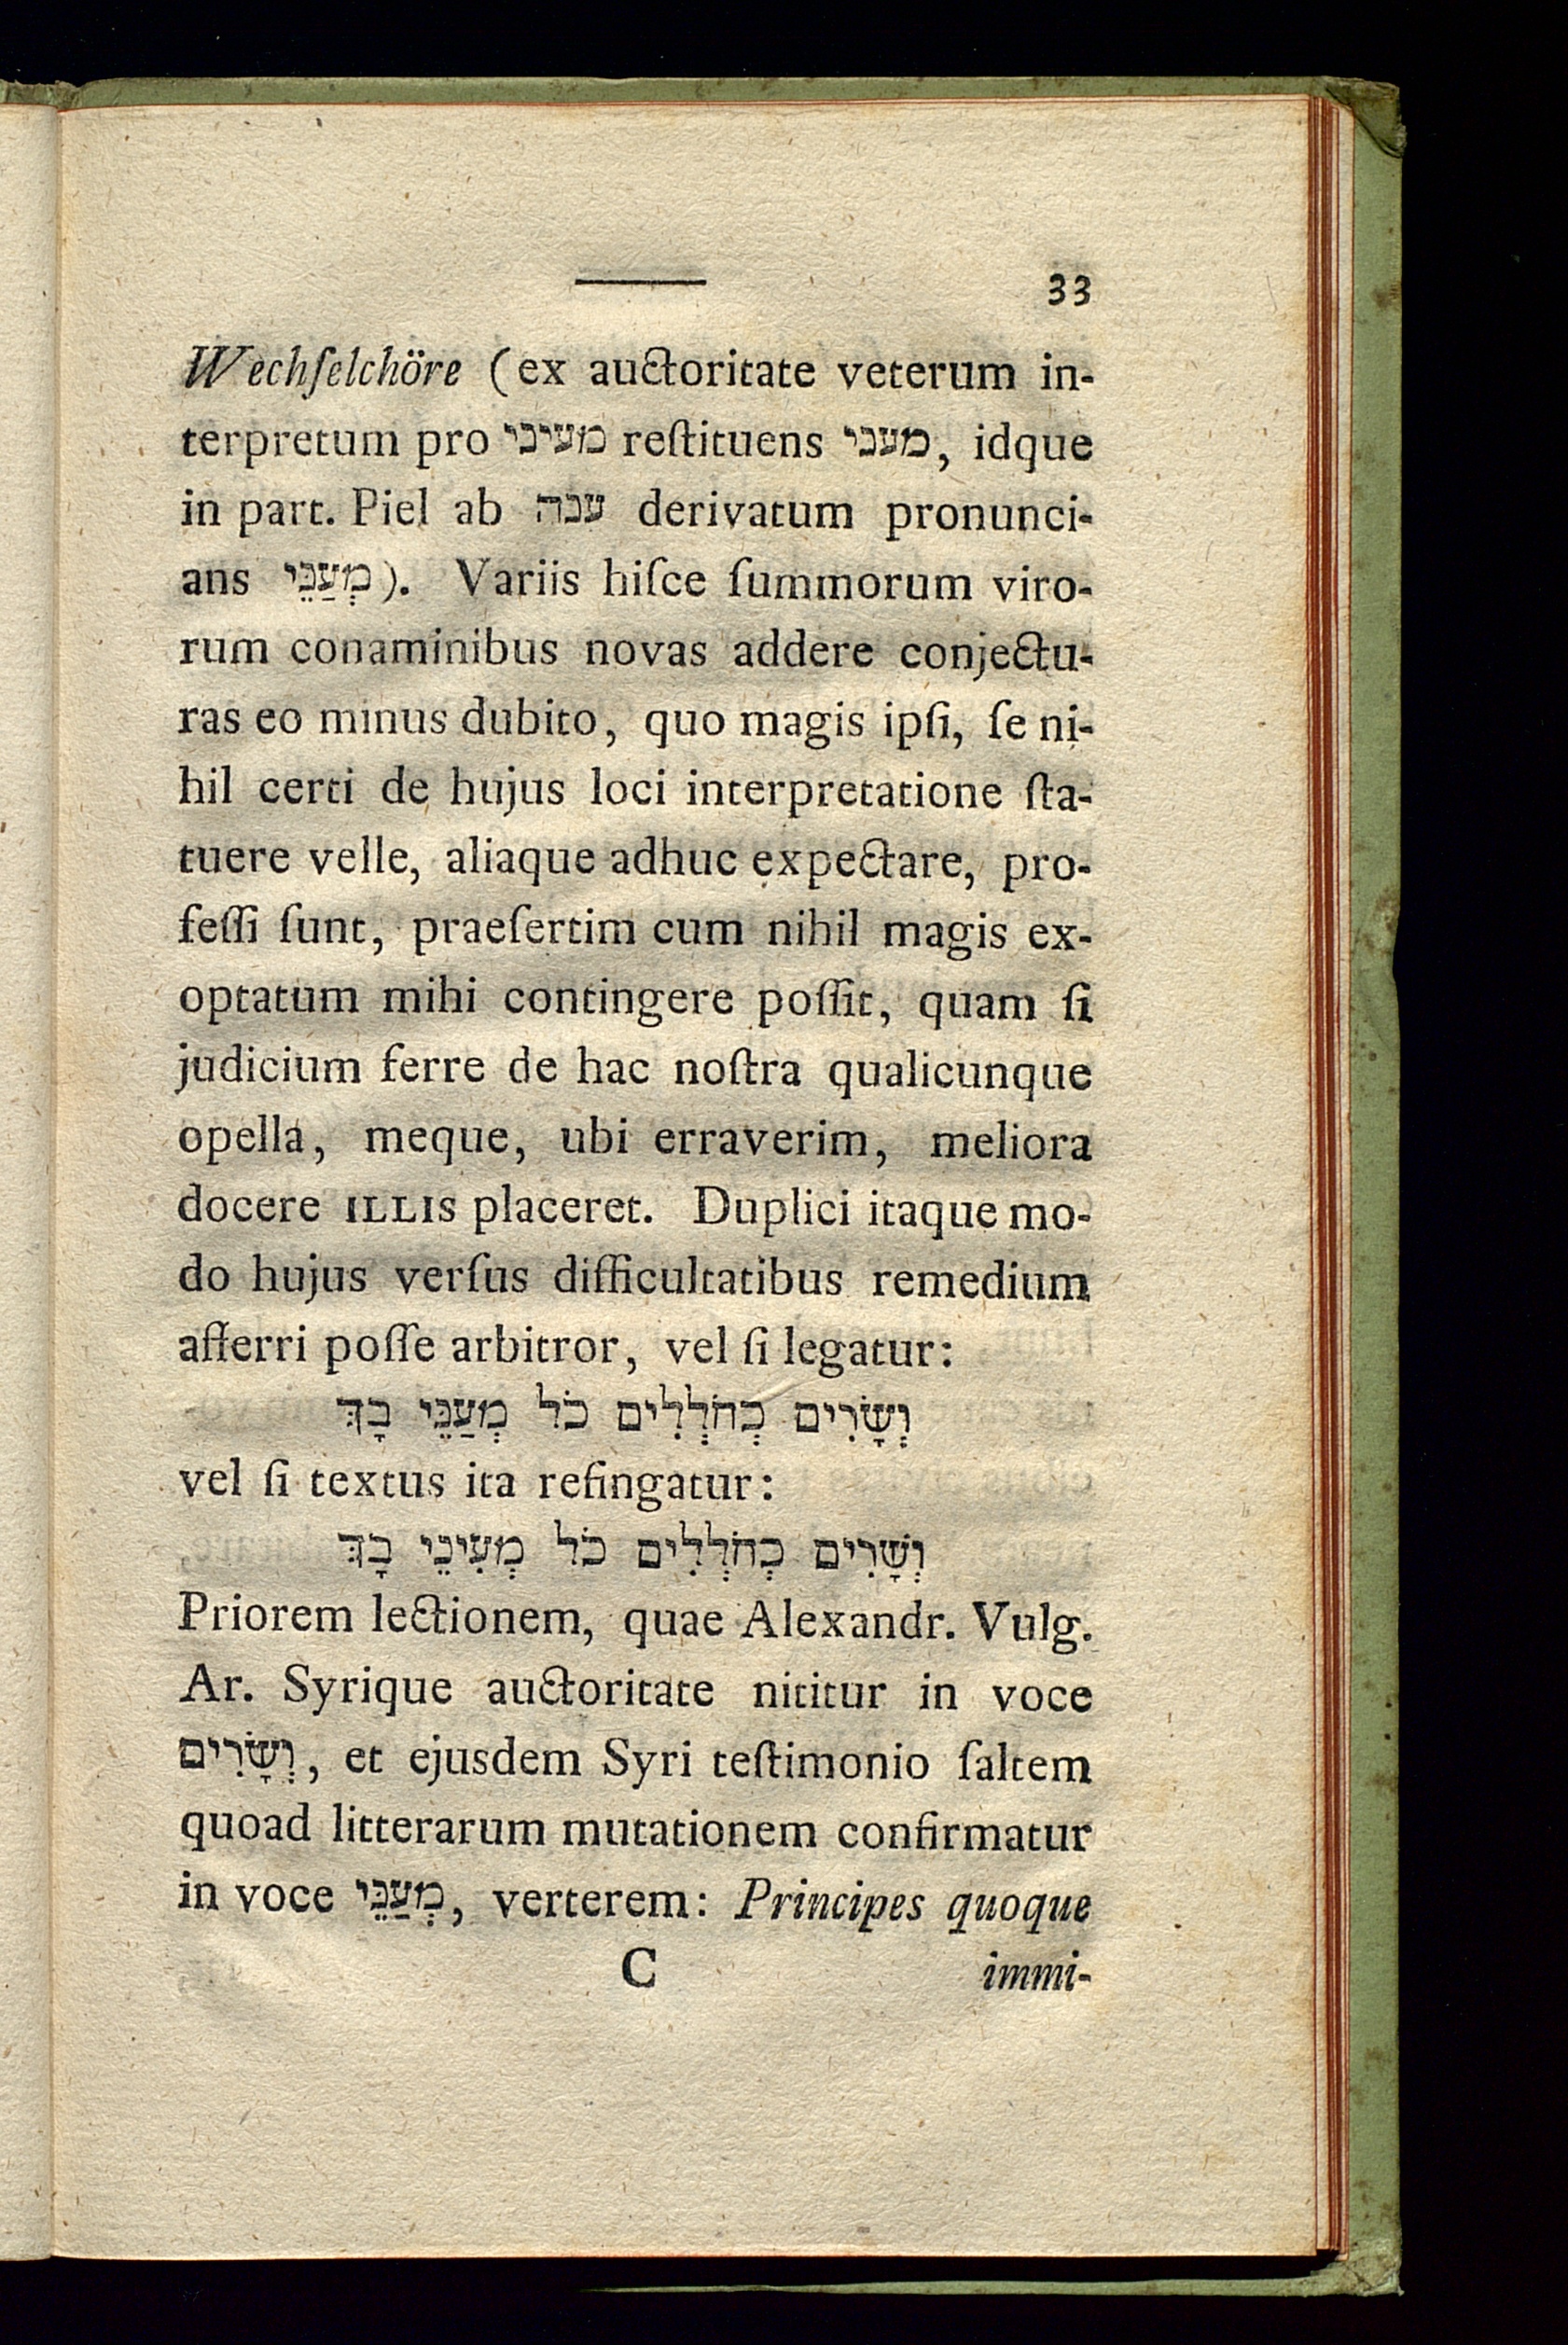 33
Wechſelchöre (ex auctoritate veterum in-
terpretum pro מעיני reſtituens מעני, idque
in part. Piel ab ענה derivatum pronunci-
ans מְעַנֵּי). Variis hiſce ſummorum viro-
rum conaminibus novas addere conjectu-
ras eo minus dubito, quo magis ipſi, ſe ni-
hil certi de hujus loci interpretatione ſta-
tuere velle, aliaque adhuc expectare, pro-
feſſi ſunt, praeſertim cum nihil magis ex-
optatum mihi contingere poſſit, quam ſi
judicium ferre de hac noſtra qualicunque
opella, meque, ubi erraverim, meliora
docere ILLIS placeret. Duplici itaque mo-
do hujus verſus difficultatibus remedium
afferri poſſe arbitror, vel ſi legatur:
וְשָׂרִים כְּחֹלְלִים כֹּל מְעַנֵּי בָךְ
vel ſi textus ita refingatur:
וְשָׁרִים כְּחֹלְלִים כֹּל מְעִינֵי בָךְ
Priorem lectionem, quae Alexandr. Vulg.
Ar. Syrique auctoritate nititur in voce
וְשָׂרִים, et ejusdem Syri teſtimonio ſaltem
quoad litterarum mutationem confirmatur
in voce מְעַנֵּי, verterem: Principes quoque
C immi-